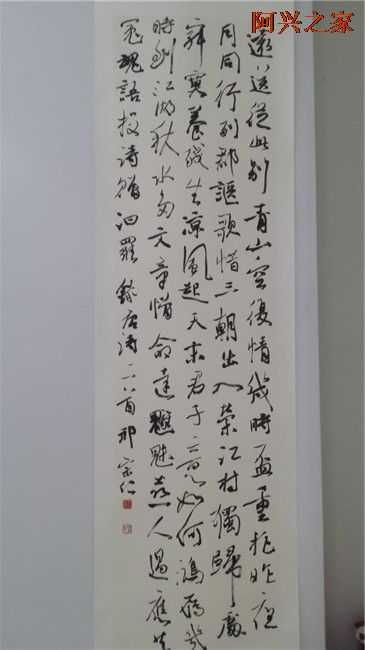 阿兴之家
遠送從此別青山空復情幾時盃重把昨夜
月同行列郡謳歌惜三朝出入榮江村獨歸處
寂寞養殘生涼風起天末君子意如何鴻雁幾
時到江湖秋水多文章憎命達魑魅喜人過應共
冤魂語投詩贈汨羅 錄唐詩二首 邢宗仁